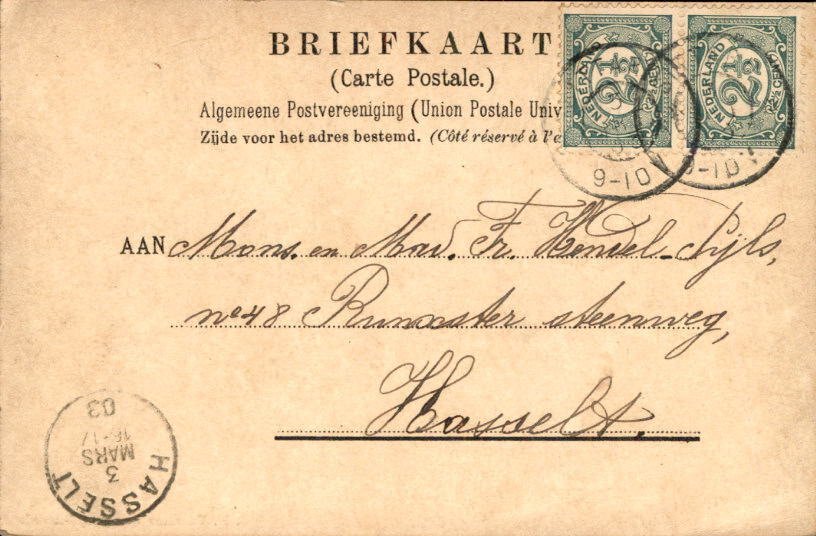 BRIEFKAART
(Carte Postale.)
Algemeene Postvereeniging (Union Postale Univ
Zijde voor het adres bestemd. (Côté réservé à l'
NEDERLAND 2½ CENT
NEDERLAND 2½ CENT
9-10V
9-10V
AAN Mons. en Mad. Fr. Hendel-Sijls,
no 48 Runxster steenweg,
Hasselt.
HASSELT
3
MARS
16-17
03